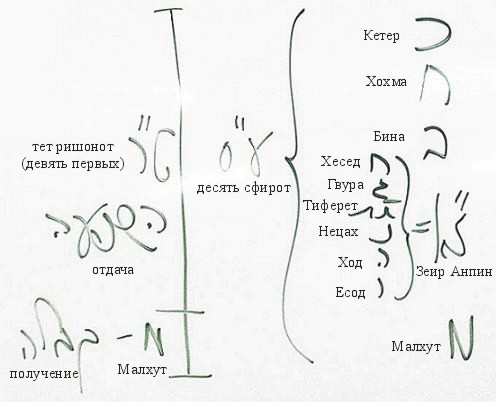 Кетер כ
Хохма ח
Бина ב
тет ришонот
(девять первых)
ט"ר
ע"ס
десять сфирот
Хесед ח
Гвура ג
Тиферет ת
Нецах נ
Ход ה
Есод י
= ז"א
Зеир Анпин
השפעה
отдача
קבלה - מ
получение Малхут
Малхут מ